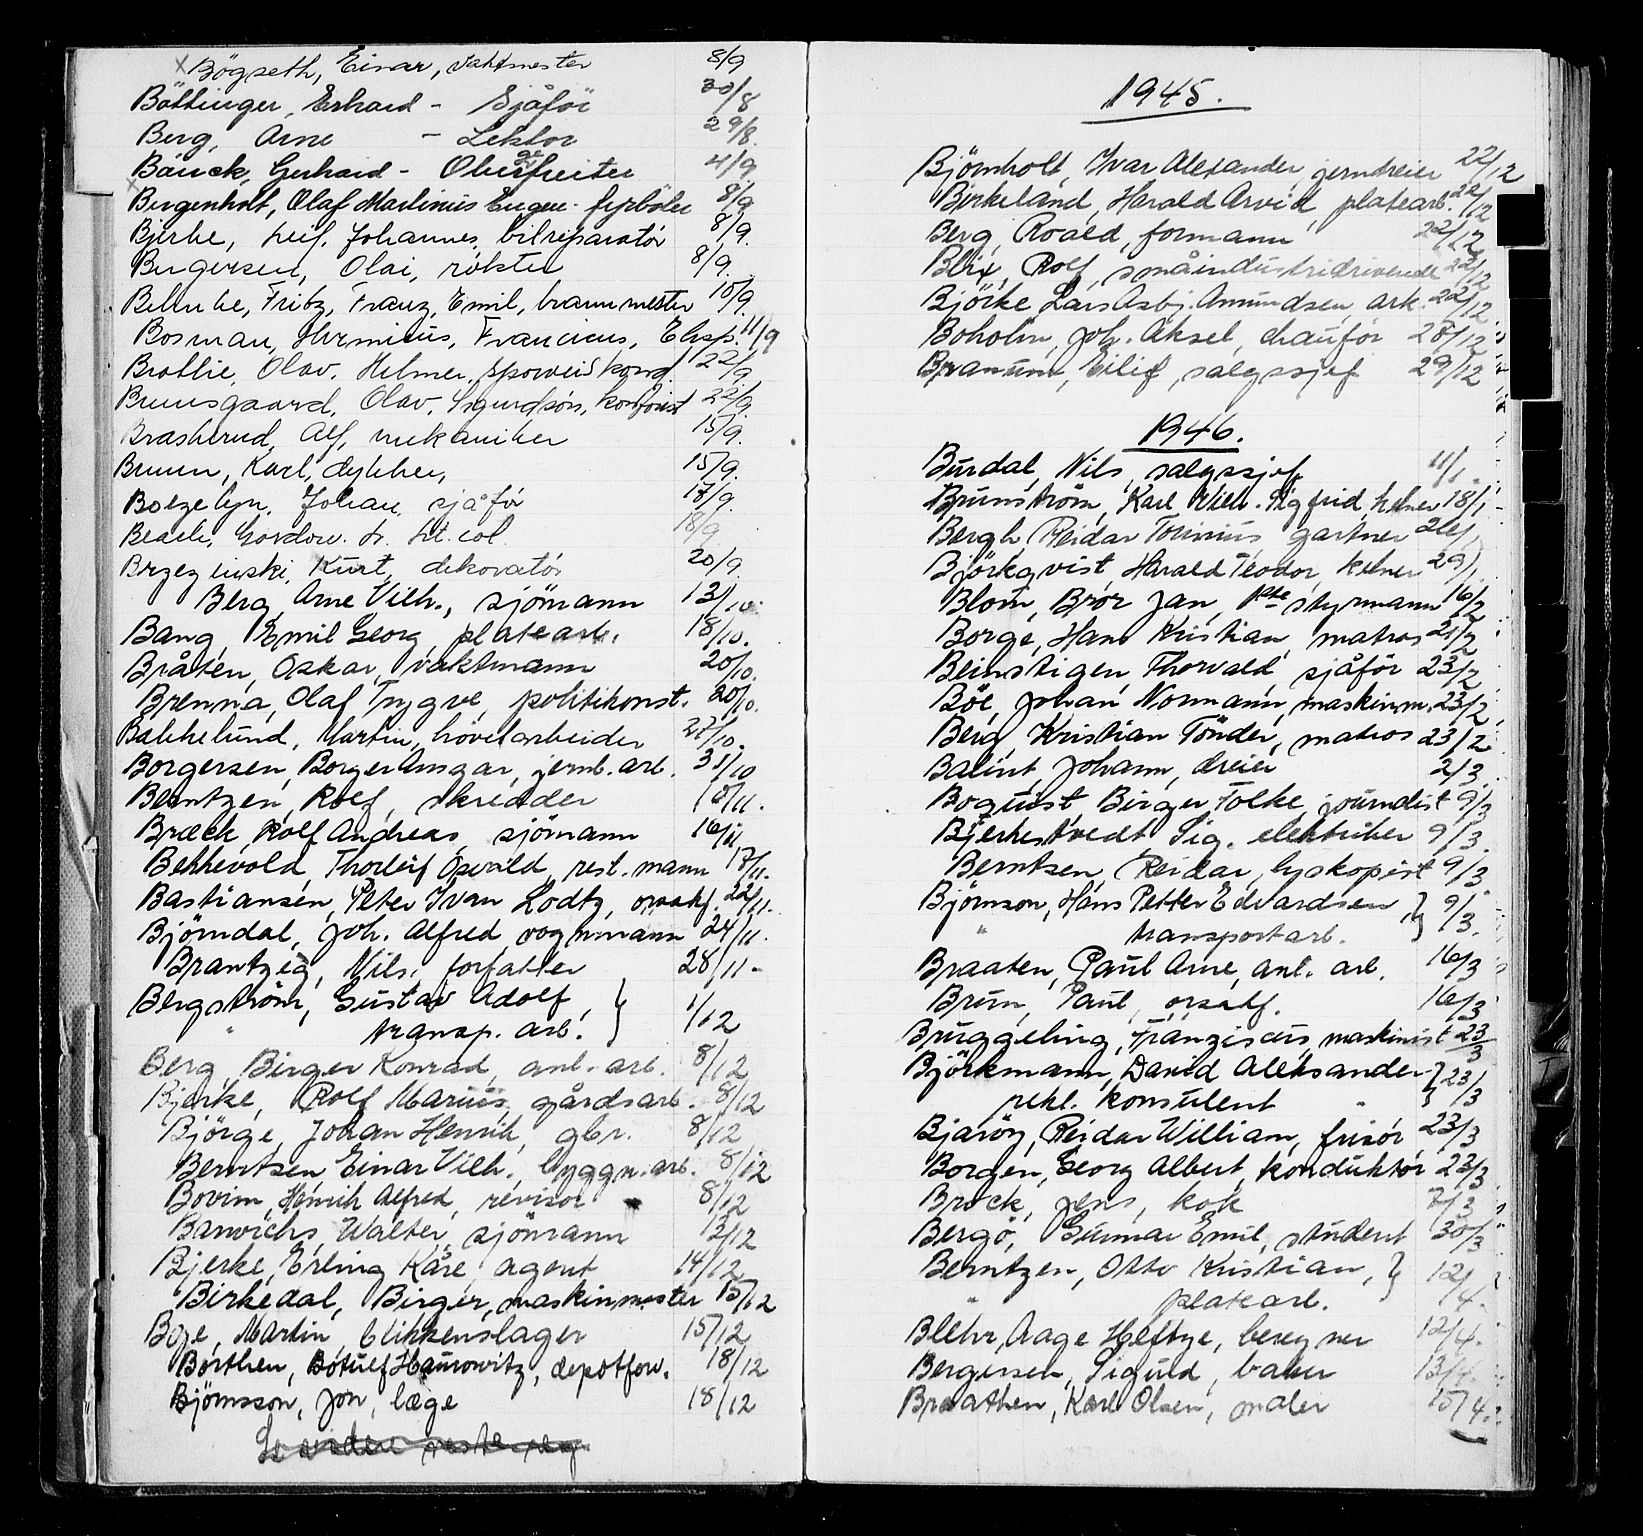 x Bögseth, Einar, vaktmester 8/9
Böttinger, Erhard - Sjåför 30/8
Berg, Arne - Lektor 29/8
Bäuck, Gerhard - Obergefreiter 4/9
x Bergenholt, Olaf Martinius Eugen - fyrböter 8/9
Bjerke, Leif Johannes, bilreparatör 8/9.
Bergersen, Olai, rökter 8/9.
Behnke, Fritz, Franz, Emil, brannmester 10/9.
Bosman, Herminus, Francicus, Eksp. 11/9
Bratlie, Olav, Helmer, sporveiskond. 22/9
Bruusgaard, Olav, Sigurdsön, kontorist 22/9.
Brasterud, Alf, mekaniker 15/9.
Bruun, Karl, dykker, 15/9.
Boezelyn, Johan, sjåför 17/9.
Beach, Gordon. Jr. Lt. col. 18/9
Brzezinski, Kurt, dekoratör 20/9.
Berg, Arne Vilh., sjömann 13/10.
Bang, Emil Georg, platearb. 18/10.
Bråten, Oskar, vaktmann 20/10.
Brenna, Olaf Trygve, politikonst. 20/10.
Bakkelund, Martin, hövelarbeider 27/10.
Borgersen, Borger Ansgar, jernb. arb. 31/10
Berntzen, Rolf, skredder 10/11.
Bræck, Rolf Andreas, sjömann 16/11
Bekkevold, Thorleif Osvald, rest. mann 17/11.
Bastiansen, Peter Ivan Lodtz, orsakf. 22/11.
Björndal, Joh. Alfred, vognmann 24/11.
Brantzeg, Nils, forfatter 28/11 -
Bergström, Gustav Adolf, }
" transp. arb. } 1/12
Berg, Birger Konrad, anl. arb. 8/12
Bjerke, Rolf Marius, gårdsarb. 8/12
Björge, Johan Henrik, gbr. 8/12
Berntsen, Einar Vilh., byggn. arb. 8/12
Bovim, Henrik Alfred, revisor 8/12
Banvichs, Walter, sjömann 13/12
Bjerke, Erling Kåre, agent 14/12
Birkedal, Birger, maskinmester 15/12
Boje, Martin, blikkenslager 15/12
Borthen, Botulf Haurowitz, depotforv. 18/12
Björnsson, Jon, læge 18/12
1945.
Björnholt, Ivar Alexander, jerndreier 22/12
Birkeland, Harald Arvid, platearb. 22/12
Berg, Roald, formann 22/12
Blix, Rolf, småindustridrivende 22/12
Björke, Lars Asbj. Amundsen, ark. 22/12
Boholm, Joh. Aksel, chauför 28/12
Branum, Eilif, salgssjef 29/12
1946.
Burdal, Nils, salgssjef 11/1.
Brunström, Karl Vilh. Sigfrid, kelner 18/1 -
Bergh, Reidar Torinius, gartner 26/1
Björkqvist, Harald Teodor, kelner 29/1
Blom, Bror Jan, 1ste styrmann 16/2
Borge, Hans Kristian, matros 21/2
Beinstigen, Thorvald, sjåför 23/2
Böe, Johan Normann, maskinm. 23/2
Berg, Kristian Tönder, matros 23/2
Balint, Johann, dreier 2/3
Boquist, Birger Folke, journalist 9/3
Bjerkestvedt, Sig. elektriker 9/3.
Berntsen, Reidar, lyskopist 9/3
Björnson, Hans Petter Edvardsen }
" transportarb. } 9/3.
Braaten, Paul Arne, anl. arb. 16/3
Brun, Paul, orsakf. 16/3
Bruggeling, Franziscus, maskinist 23/3
Björkmann, David Aleksander }
rekl. konsulent " } 23/3
Bjaröy, Reidar William, frisör 23/3
Borgen, Georg Albert, konduktör 23/3
Brock, Jens, kok 7/3
Bergö, Gunnar Emil, student 30/3
Berntzen, Otto Kristian, }
" platearb. } 12/4.
Blehr, Aage Heftye, beregner 12/4.
Bergersen, Sigurd, baker 13/4.
Braathen, Karl Olsen, maler 15/4.